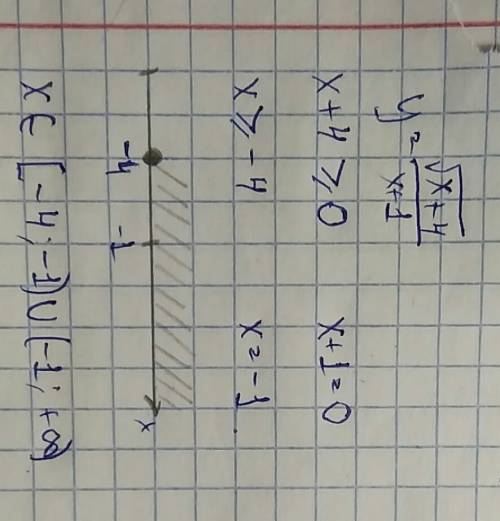 y = √(x+4) / (x+1)
x+4 ⩾ 0    x+1=0
x ⩾ -4    x = -1
-4    -1    x
x ∈ [-4; -1) ∪ (-1; +∞)